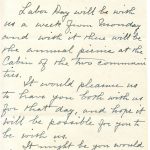 Labor Day will be with
us a week from Monday
and with it there will be
the annual picnic at the
Cabin of the two communi
ties.
It would please us
to have you both with us
for that day, and hope it
will be possible for you to
be with us.
It might be you would